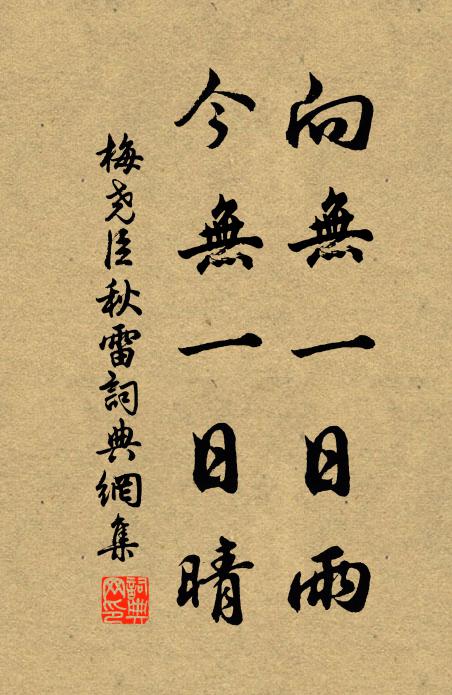 向無一日雨
今無一日晴
梅堯臣秋雷詞典網集
詞典網印